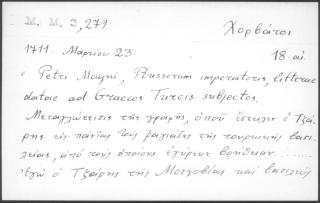 M. M. 3, 279
Χορβάτοι
1711. Μαρτίου 23
18. αἰ.
Petri Magni, Russorum imperatoris, litterae
datae ad Graecos Turcis subjectos.
Μεταγλώττισις τῆς γραφῆς, ὁποῦ ἔστειλεν ὁ Τζά-
ρης εἰς πάντας τοὺς ραγιάδες τῆς τουρκικῆς βασι-
λείας, ἀπὸ τοὺς ὁποίους ἐγύρευε βοήθειαν.......
Ἐγὼ ὁ Τζάρης τῆς Μοσχοβίας καὶ βασιλεὺς